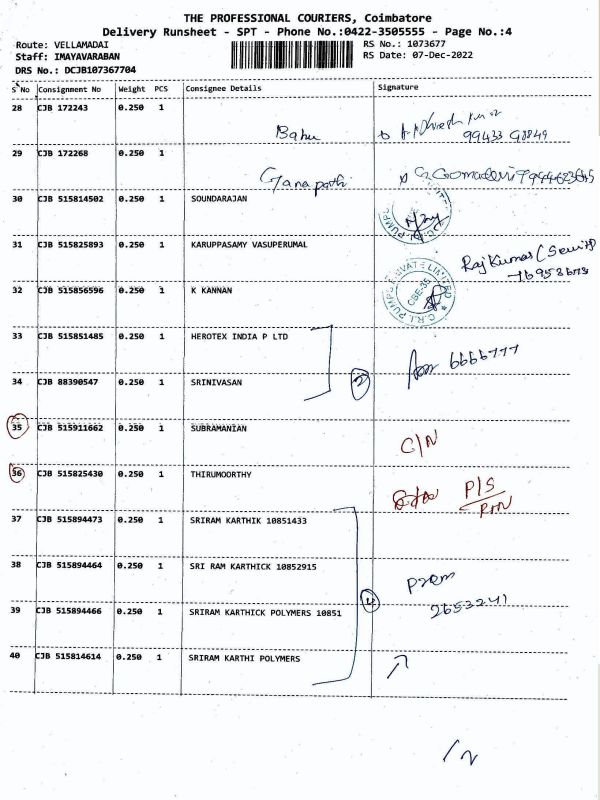 THE PROFESSIONAL COURIERS, Coimbatore
Delivery Runsheet - SPT - Phone No.:0422-3505555 - Page No.:4
Route: VELLAMADAI RS No.: 1073677
Staff: IMAYAVARABAN RS Date: 07-Dec-2022
DRS No.: DCJB107367704
S No Consignment No Weight PCS Consignee Details Signature
28 CJB 172243 0.250 1
Babu 99433 98849
29 CJB 172268 0.250 1
Ganapathi G. Gomadevi
30 CJB 515814502 0.250 1 SOUNDARAJAN
31 CJB 515825893 0.250 1 KARUPPASAMY VASUPERUMAL
Raj Kumar
32 CJB 515856596 0.250 1 K KANNAN
CBE-35
C.R.I. PUMPS PRIVATE LIMITED
33 CJB 515851485 0.250 1 HEROTEX INDIA P LTD
6666777
34 CJB 88390547 0.250 1 SRINIVASAN
2
35 CJB 515911662 0.250 1 SUBRAMANIAN
C/N
36 CJB 515825430 0.250 1 THIRUMOORTHY
P/S
37 CJB 515894473 0.250 1 SRIRAM KARTHIK 10851433
38 CJB 515894464 0.250 1 SRI RAM KARTHICK 10852915
Prem
2653241
39 CJB 515894466 0.250 1 SRIRAM KARTHICK POLYMERS 10851
40 CJB 515814614 0.250 1 SRIRAM KARTHI POLYMERS